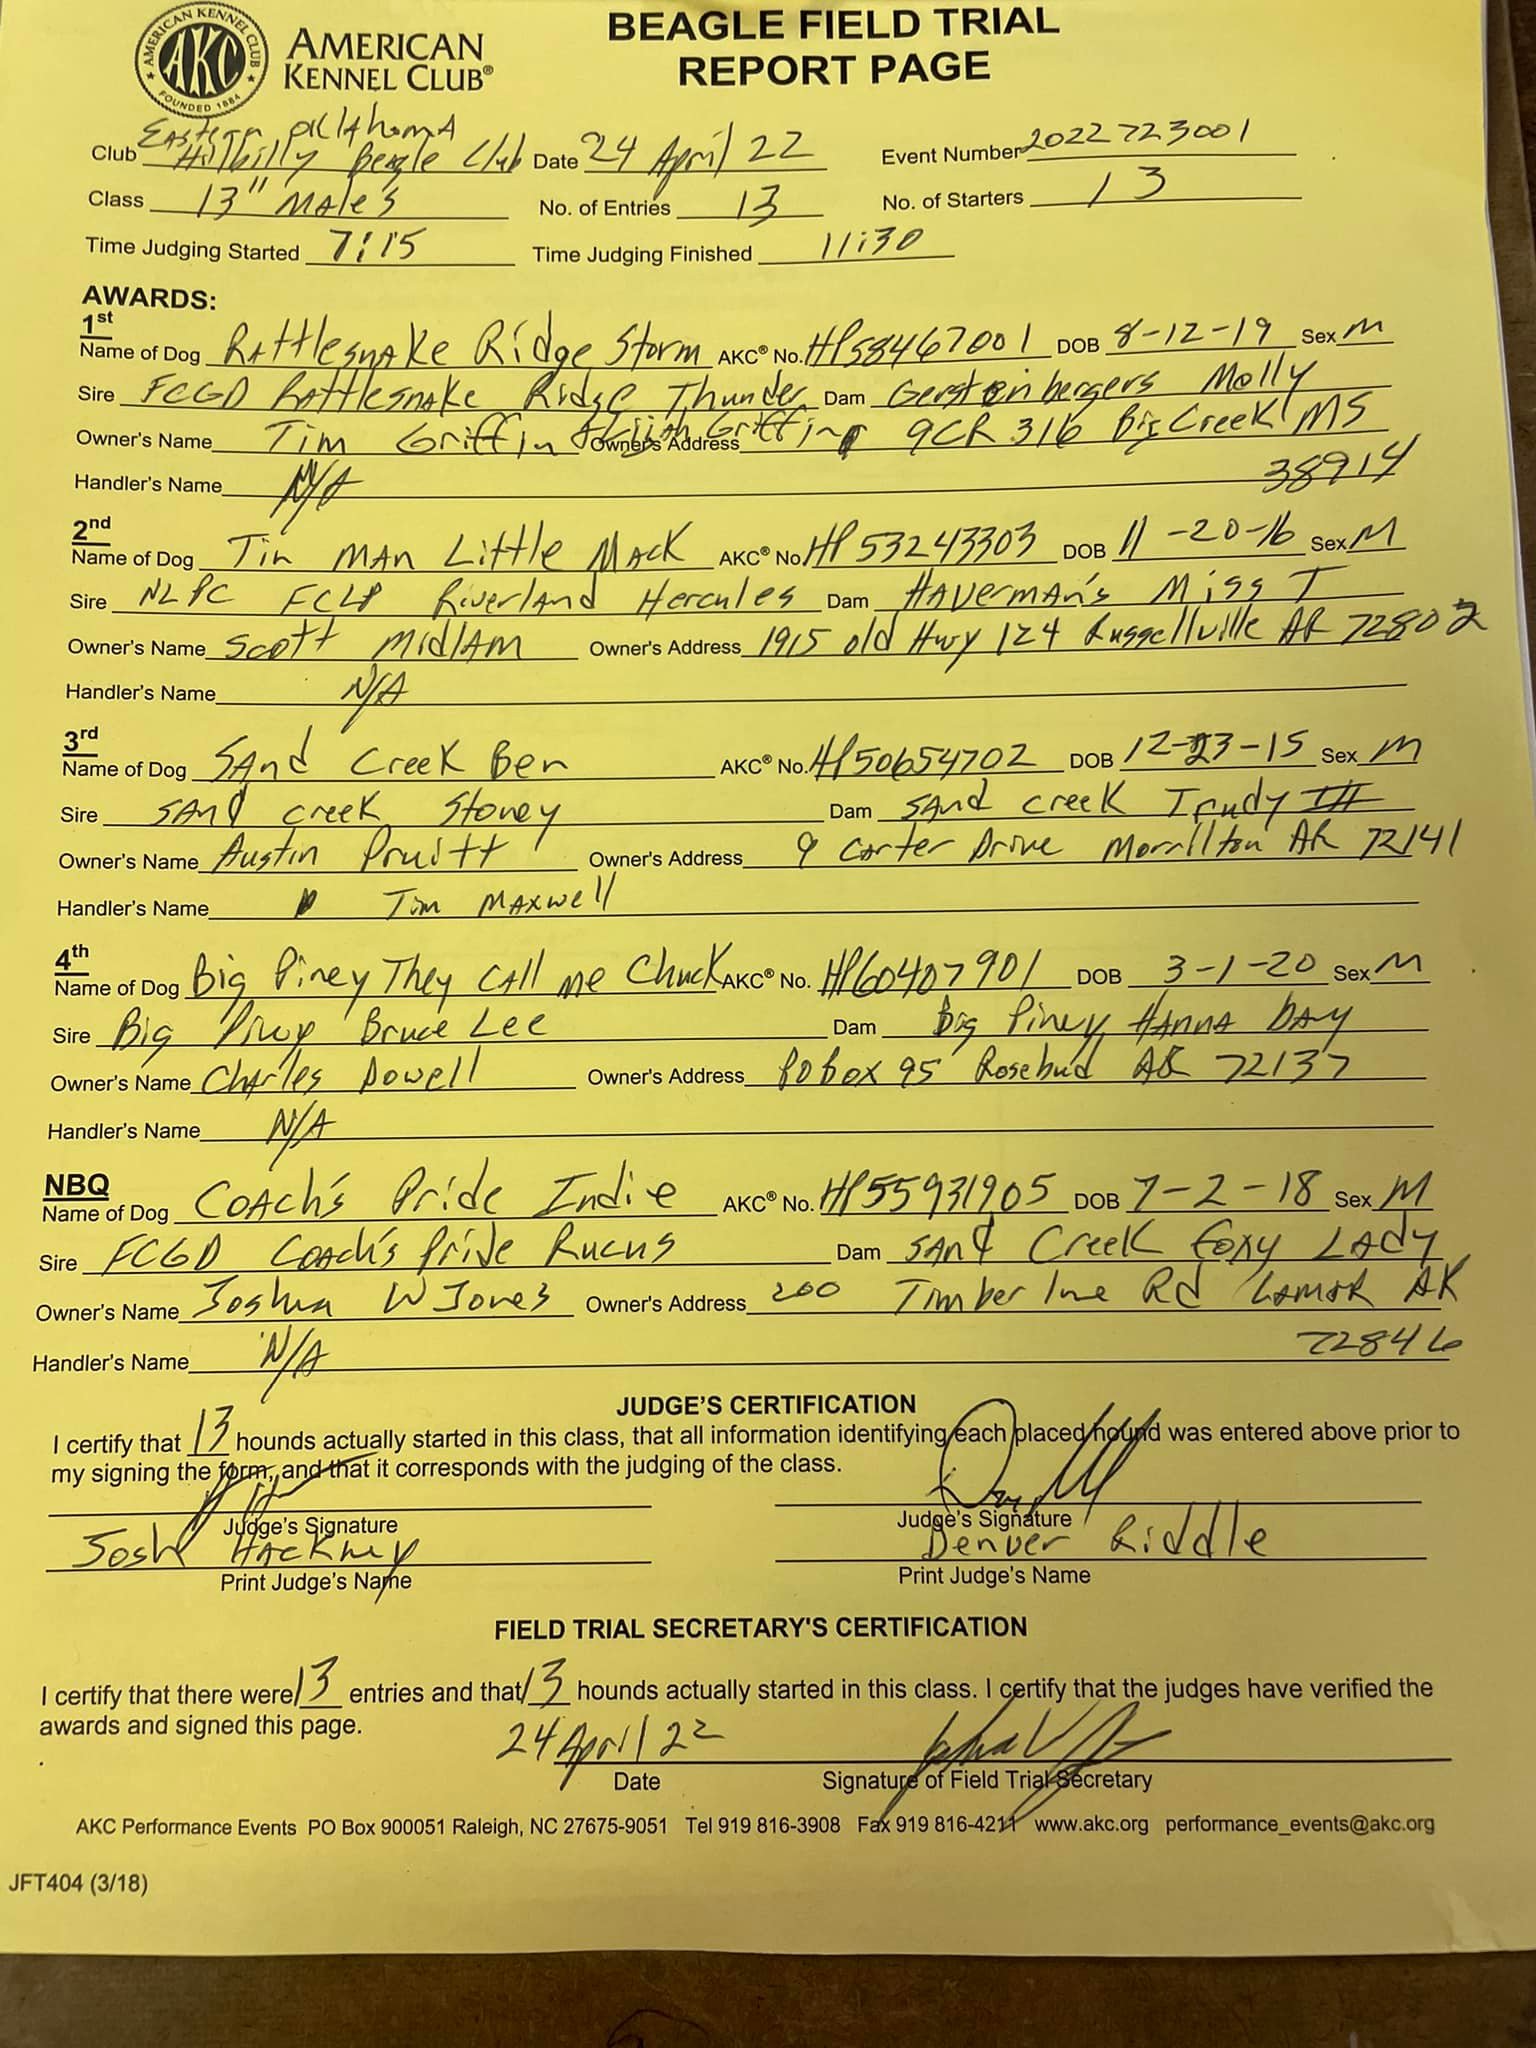 AMERICAN KENNEL CLUB
AKC
FOUNDED 1884
AMERICAN
KENNEL CLUB®
BEAGLE FIELD TRIAL
REPORT PAGE
Eastern Oklahoma
Club Hillbilly Beagle Club Date 24 April 22 Event Number 2022723001
Class 13" Males No. of Entries 13 No. of Starters 13
Time Judging Started 7:15 Time Judging Finished 11:30
AWARDS:
1st
Name of Dog Rattlesnake Ridge Storm AKC® No. HP58467001 DOB 8-12-19 Sex M
Sire FCGD Rattlesnake Ridge Thunder Dam Gerstenbergers Molly
Owner's Name Tim Griffin Griffin Owner's Address 9 CR 316 Big Creek MS
38914
Handler's Name N/A
2nd
Name of Dog Tin Man Little Mack AKC® No. HP53243303 DOB 11-20-16 Sex M
Sire NLPC FCLP Riverland Hercules Dam Haverman's Miss T
Owner's Name Scott Midlam Owner's Address 1915 old Hwy 124 Russellville AR 72802
Handler's Name N/A
3rd
Name of Dog Sand Creek Ben AKC® No. HP50654702 DOB 12-23-15 Sex M
Sire Sand Creek Stoney Dam Sand Creek Trudy III
Owner's Name Austin Pruitt Owner's Address 9 Carter Drive Morrilton AR 72141
Handler's Name Tim Maxwell
4th
Name of Dog Big Piney They Call Me Chuck AKC® No. HP60407901 DOB 3-1-20 Sex M
Sire Big Piney Bruce Lee Dam Big Piney Hanna Day
Owner's Name Charles Dowell Owner's Address PO Box 95 Rosebud AR 72137
Handler's Name N/A
NBQ
Name of Dog Coach's Pride Indie AKC® No. HP55931905 DOB 7-2-18 Sex M
Sire FCGD Coach's Pride Rucus Dam Sand Creek Foxy Lady
Owner's Name Joshua W Jones Owner's Address 200 Timberline Rd Lamar AR
72846
Handler's Name N/A
JUDGE'S CERTIFICATION
I certify that 13 hounds actually started in this class, that all information identifying each placed hound was entered above prior to
my signing the form, and that it corresponds with the judging of the class.
Judge's Signature Judge's Signature
Josh Hackney Denver Riddle
Print Judge's Name Print Judge's Name
FIELD TRIAL SECRETARY'S CERTIFICATION
I certify that there were 13 entries and that 13 hounds actually started in this class. I certify that the judges have verified the
awards and signed this page.
24 April 22
Date Signature of Field Trial Secretary
AKC Performance Events PO Box 900051 Raleigh, NC 27675-9051 Tel 919 816-3908 Fax 919 816-4211 www.akc.org performance_events@akc.org
JFT404 (3/18)